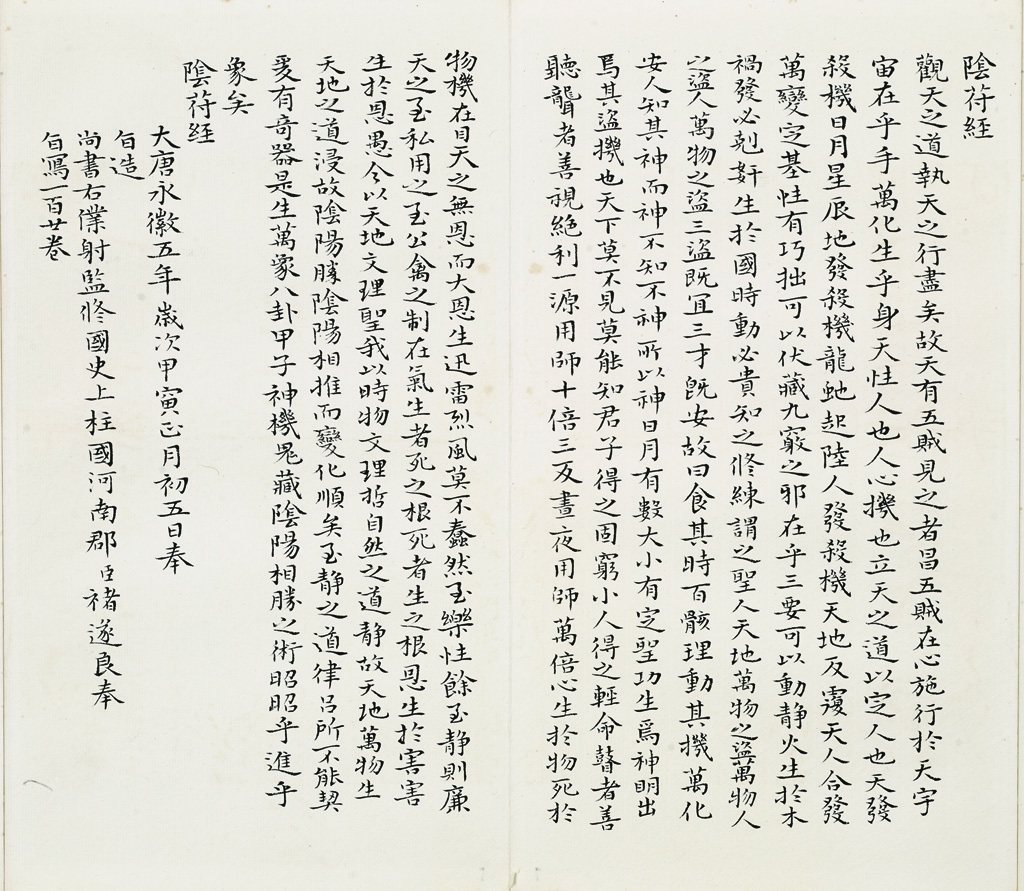 陰符経
觀天之道執天之行盡矣故天有五賊見之者昌五賊在心施行於天宇
宙在乎手萬化生乎身天性人也人心機也立天之道以定人也天發
殺機日月星辰地發殺機龍虵起陸人發殺機天地反覆天人合發
萬變定基性有巧拙可以伏藏九竅之邪在乎三要可以動靜火生於木
禍發必剋奸生於國時動必貴知之修練謂之聖人天地萬物之盜萬物人
之盜人萬物之盜三盜既冝三才既安故曰食其時百骸理動其機萬化
安人知其神而神不知不神所以神日月有數大小有定聖功生焉神明出
焉其盜機也天下莫不見莫能知君子得之固窮小人得之輕命瞽者善
聽聾者善視絶利一源用師十倍三反晝夜用師萬倍心生於物死於
物機在目天之無恩而大恩生迅雷烈風莫不蠢然至樂性餘至靜則廉
天之至私用之至公禽之制在氣生者死之根死者生之根恩生於害害
生於恩愚人以天地文理聖我以時物文理哲自然之道靜故天地萬物生
天地之道浸故陰陽勝陰陽相推而變化順矣至靜之道律呂所不能契
爰有奇器是生萬象八卦甲子神機鬼藏陰陽相勝之術昭昭乎進乎
象矣
陰符経
大唐永徽五年歲次甲寅正月初五日奉
旨造
尚書右僕射監修國史上柱國河南郡臣褚遂良奉
旨寫一百廿卷